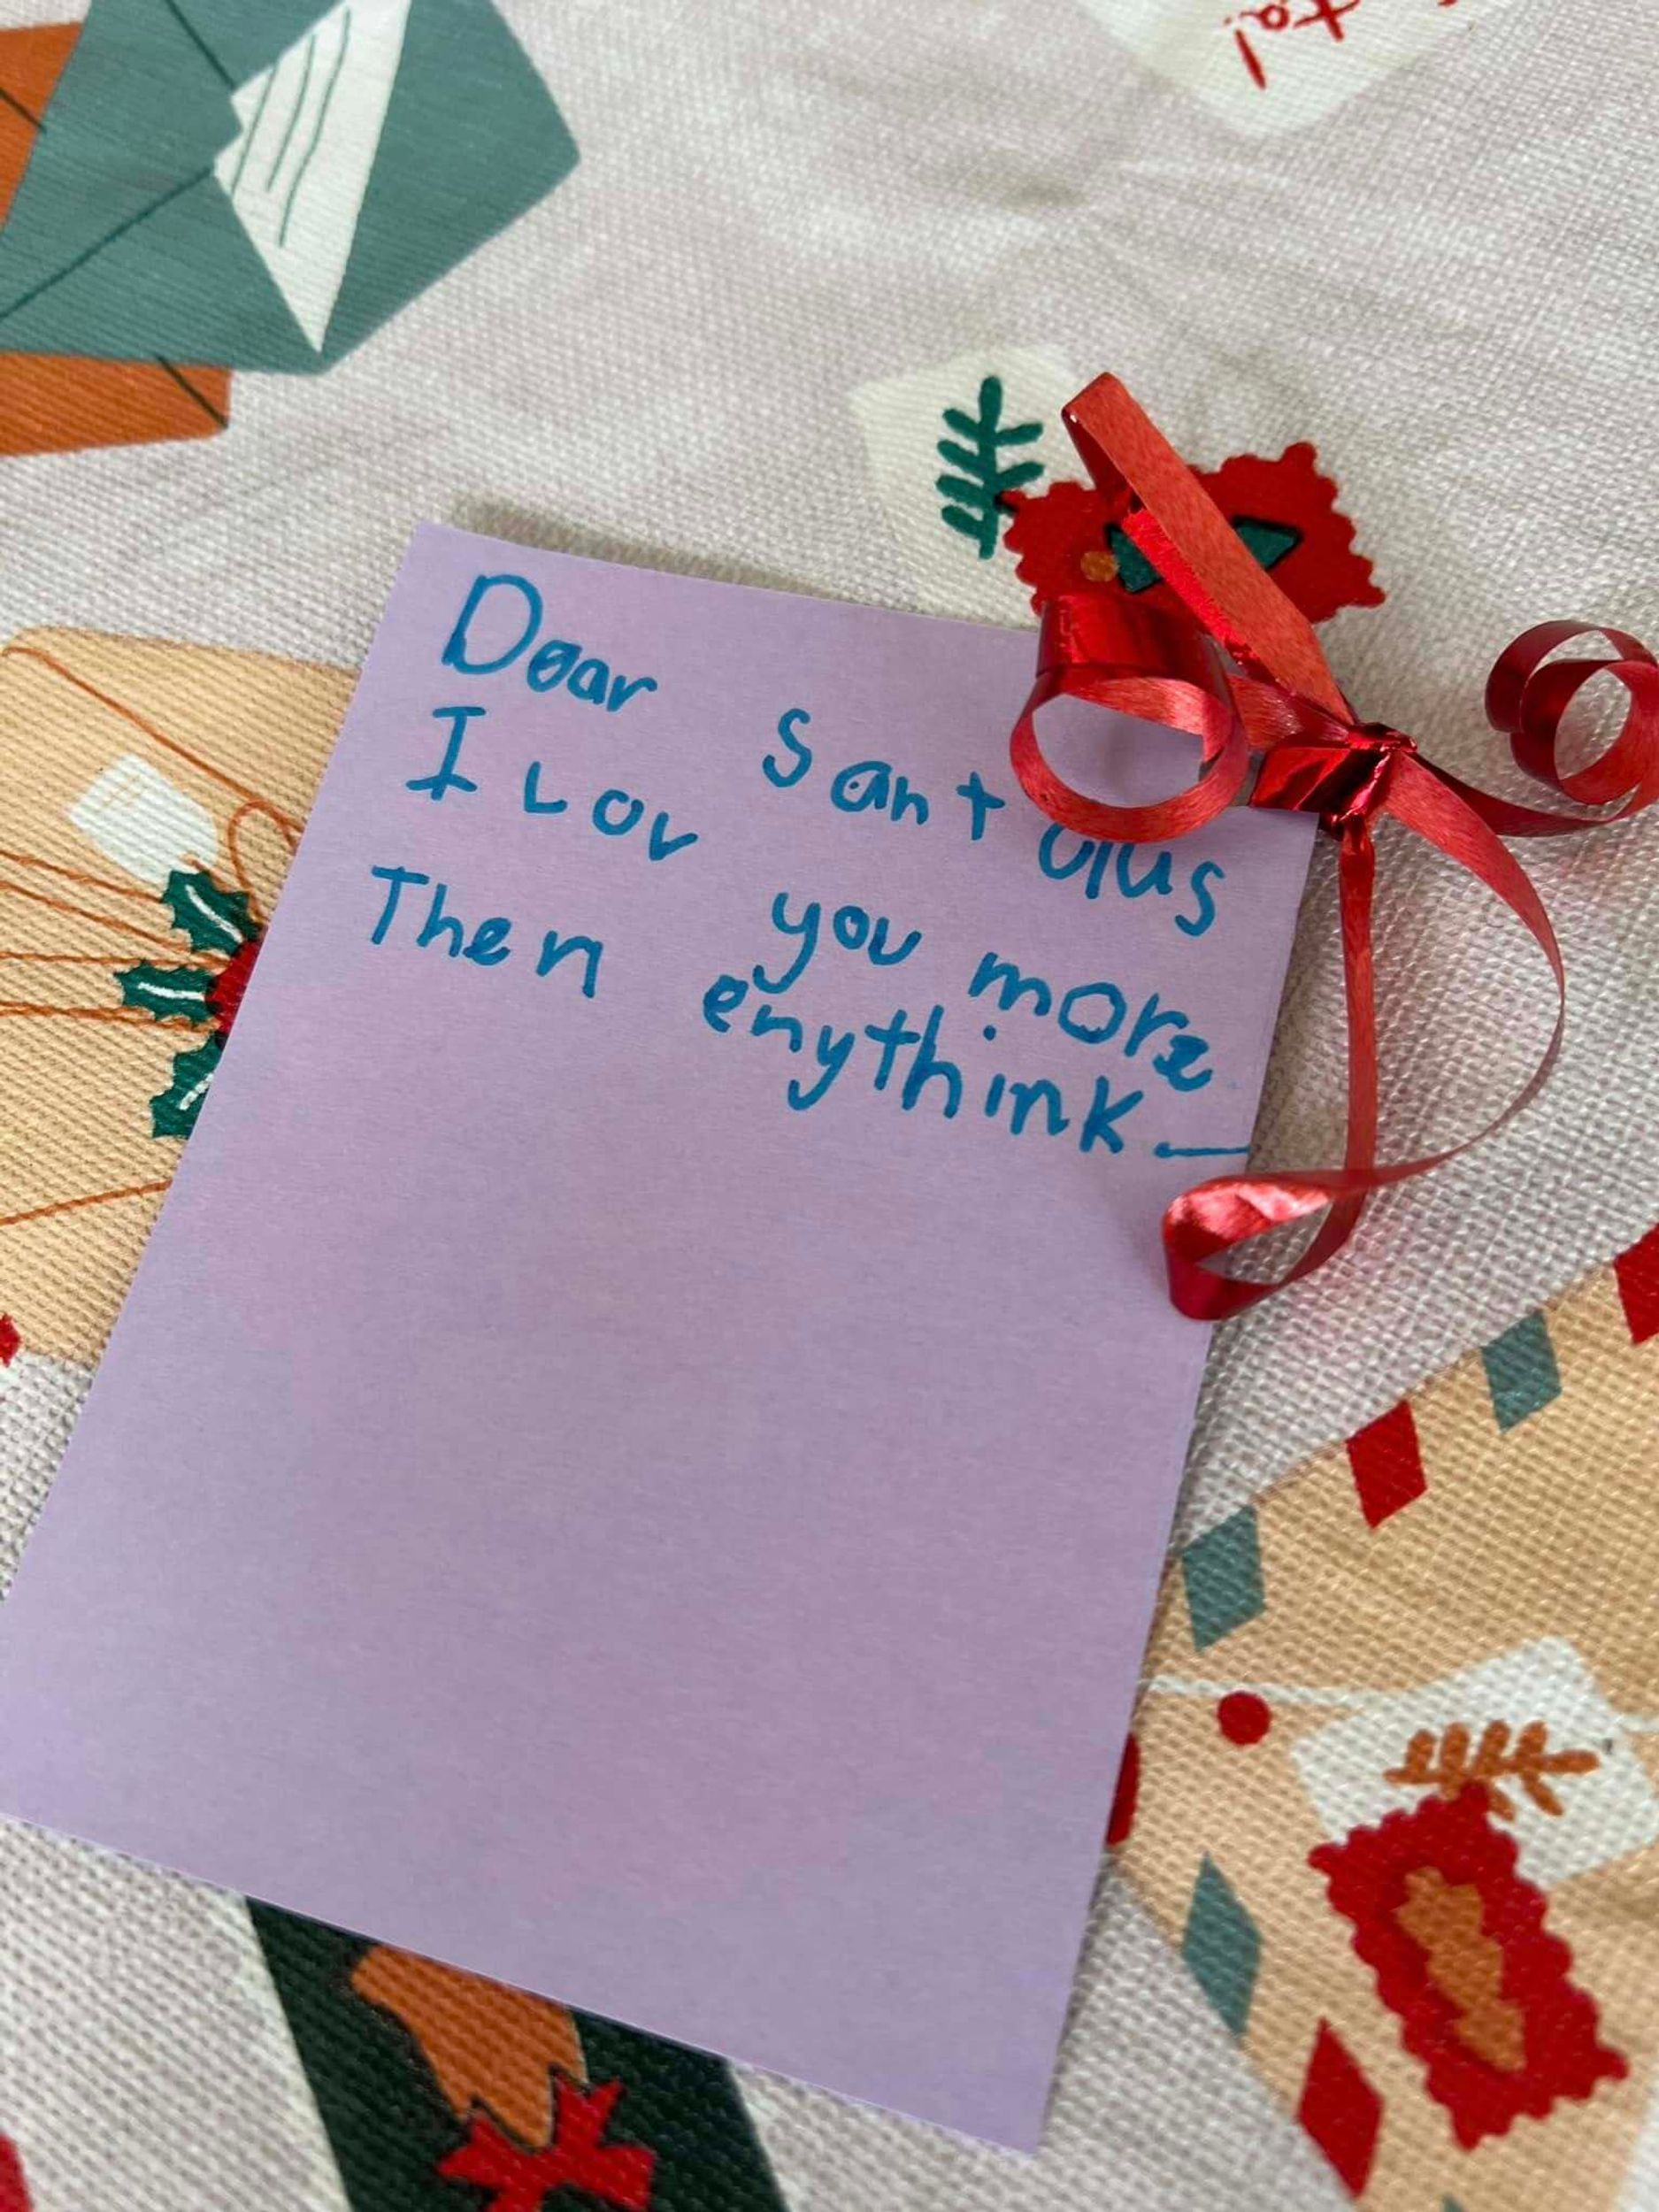 Dear Sant olas
I Lov you more
Then enythink